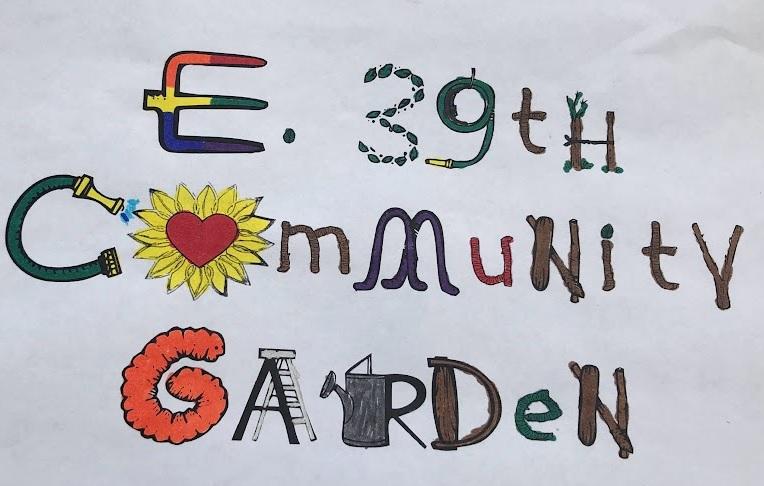 E. 39th
Community
Garden